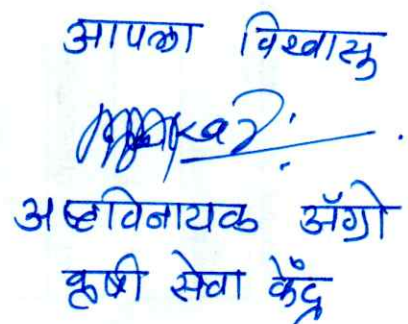 आपला विश्वासु
अष्टविनायक ॲग्रो
कृषी सेवा केंद्र